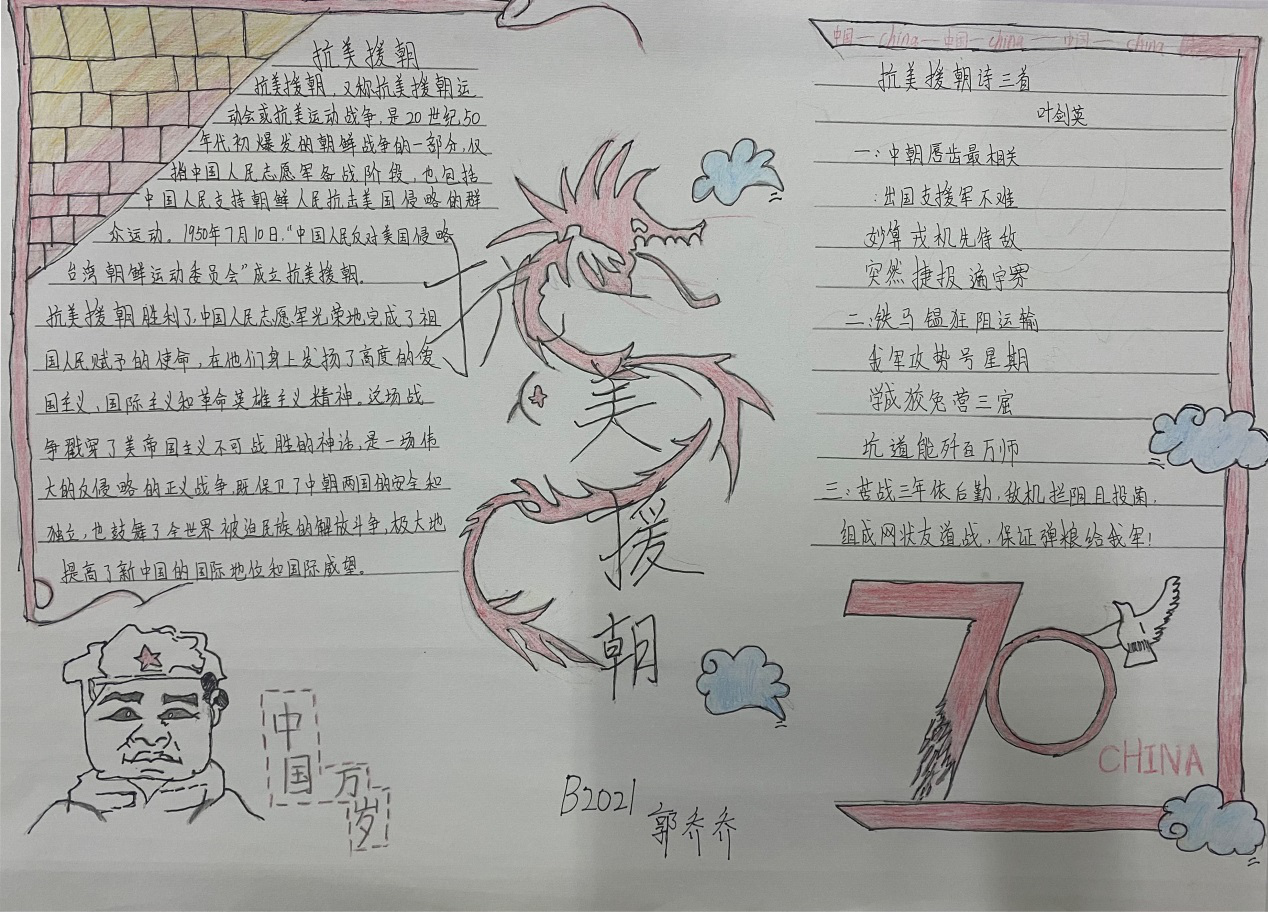 抗美援朝
抗美援朝,又称抗美援朝运
动会或抗美运动战争,是20世纪50
年代初爆发的朝鲜战争的一部分,仅
指中国人民志愿军备战阶段,也包括
中国人民支持朝鲜人民抗击美国侵略的群
众运动。1950年7月10日,“中国人民反对美国侵略
台湾朝鲜运动委员会”成立抗美援朝。
抗美援朝胜利了,中国人民志愿军光荣地完成了祖
国人民赋予的使命,在他们身上发扬了高度的爱
国主义、国际主义和革命英雄主义精神。这场战
争戳穿了美帝国主义不可战胜的神话,是一场伟
大的反侵略的正义战争,既保卫了中朝两国的安全和
独立,也鼓舞了全世界被迫民族的解放斗争,极大地
提高了新中国的国际地位和国际威望。
中国万岁
抗美援朝
B2021
郭乔乔
中国—china—中国—china—中国—china
抗美援朝诗三首
叶剑英
一:中朝唇齿最相关
:出国支援军不难
妙算戎机先待敌
突然捷报遍宇寰
二:铁马猖狂阻运输
我军攻势号星期
学成狡兔营三窟
坑道能歼百万师
三:苦战三年依后勤,敌机拦阻且投菌,
组成网状友道战,保证弹粮给我军!
70
CHINA